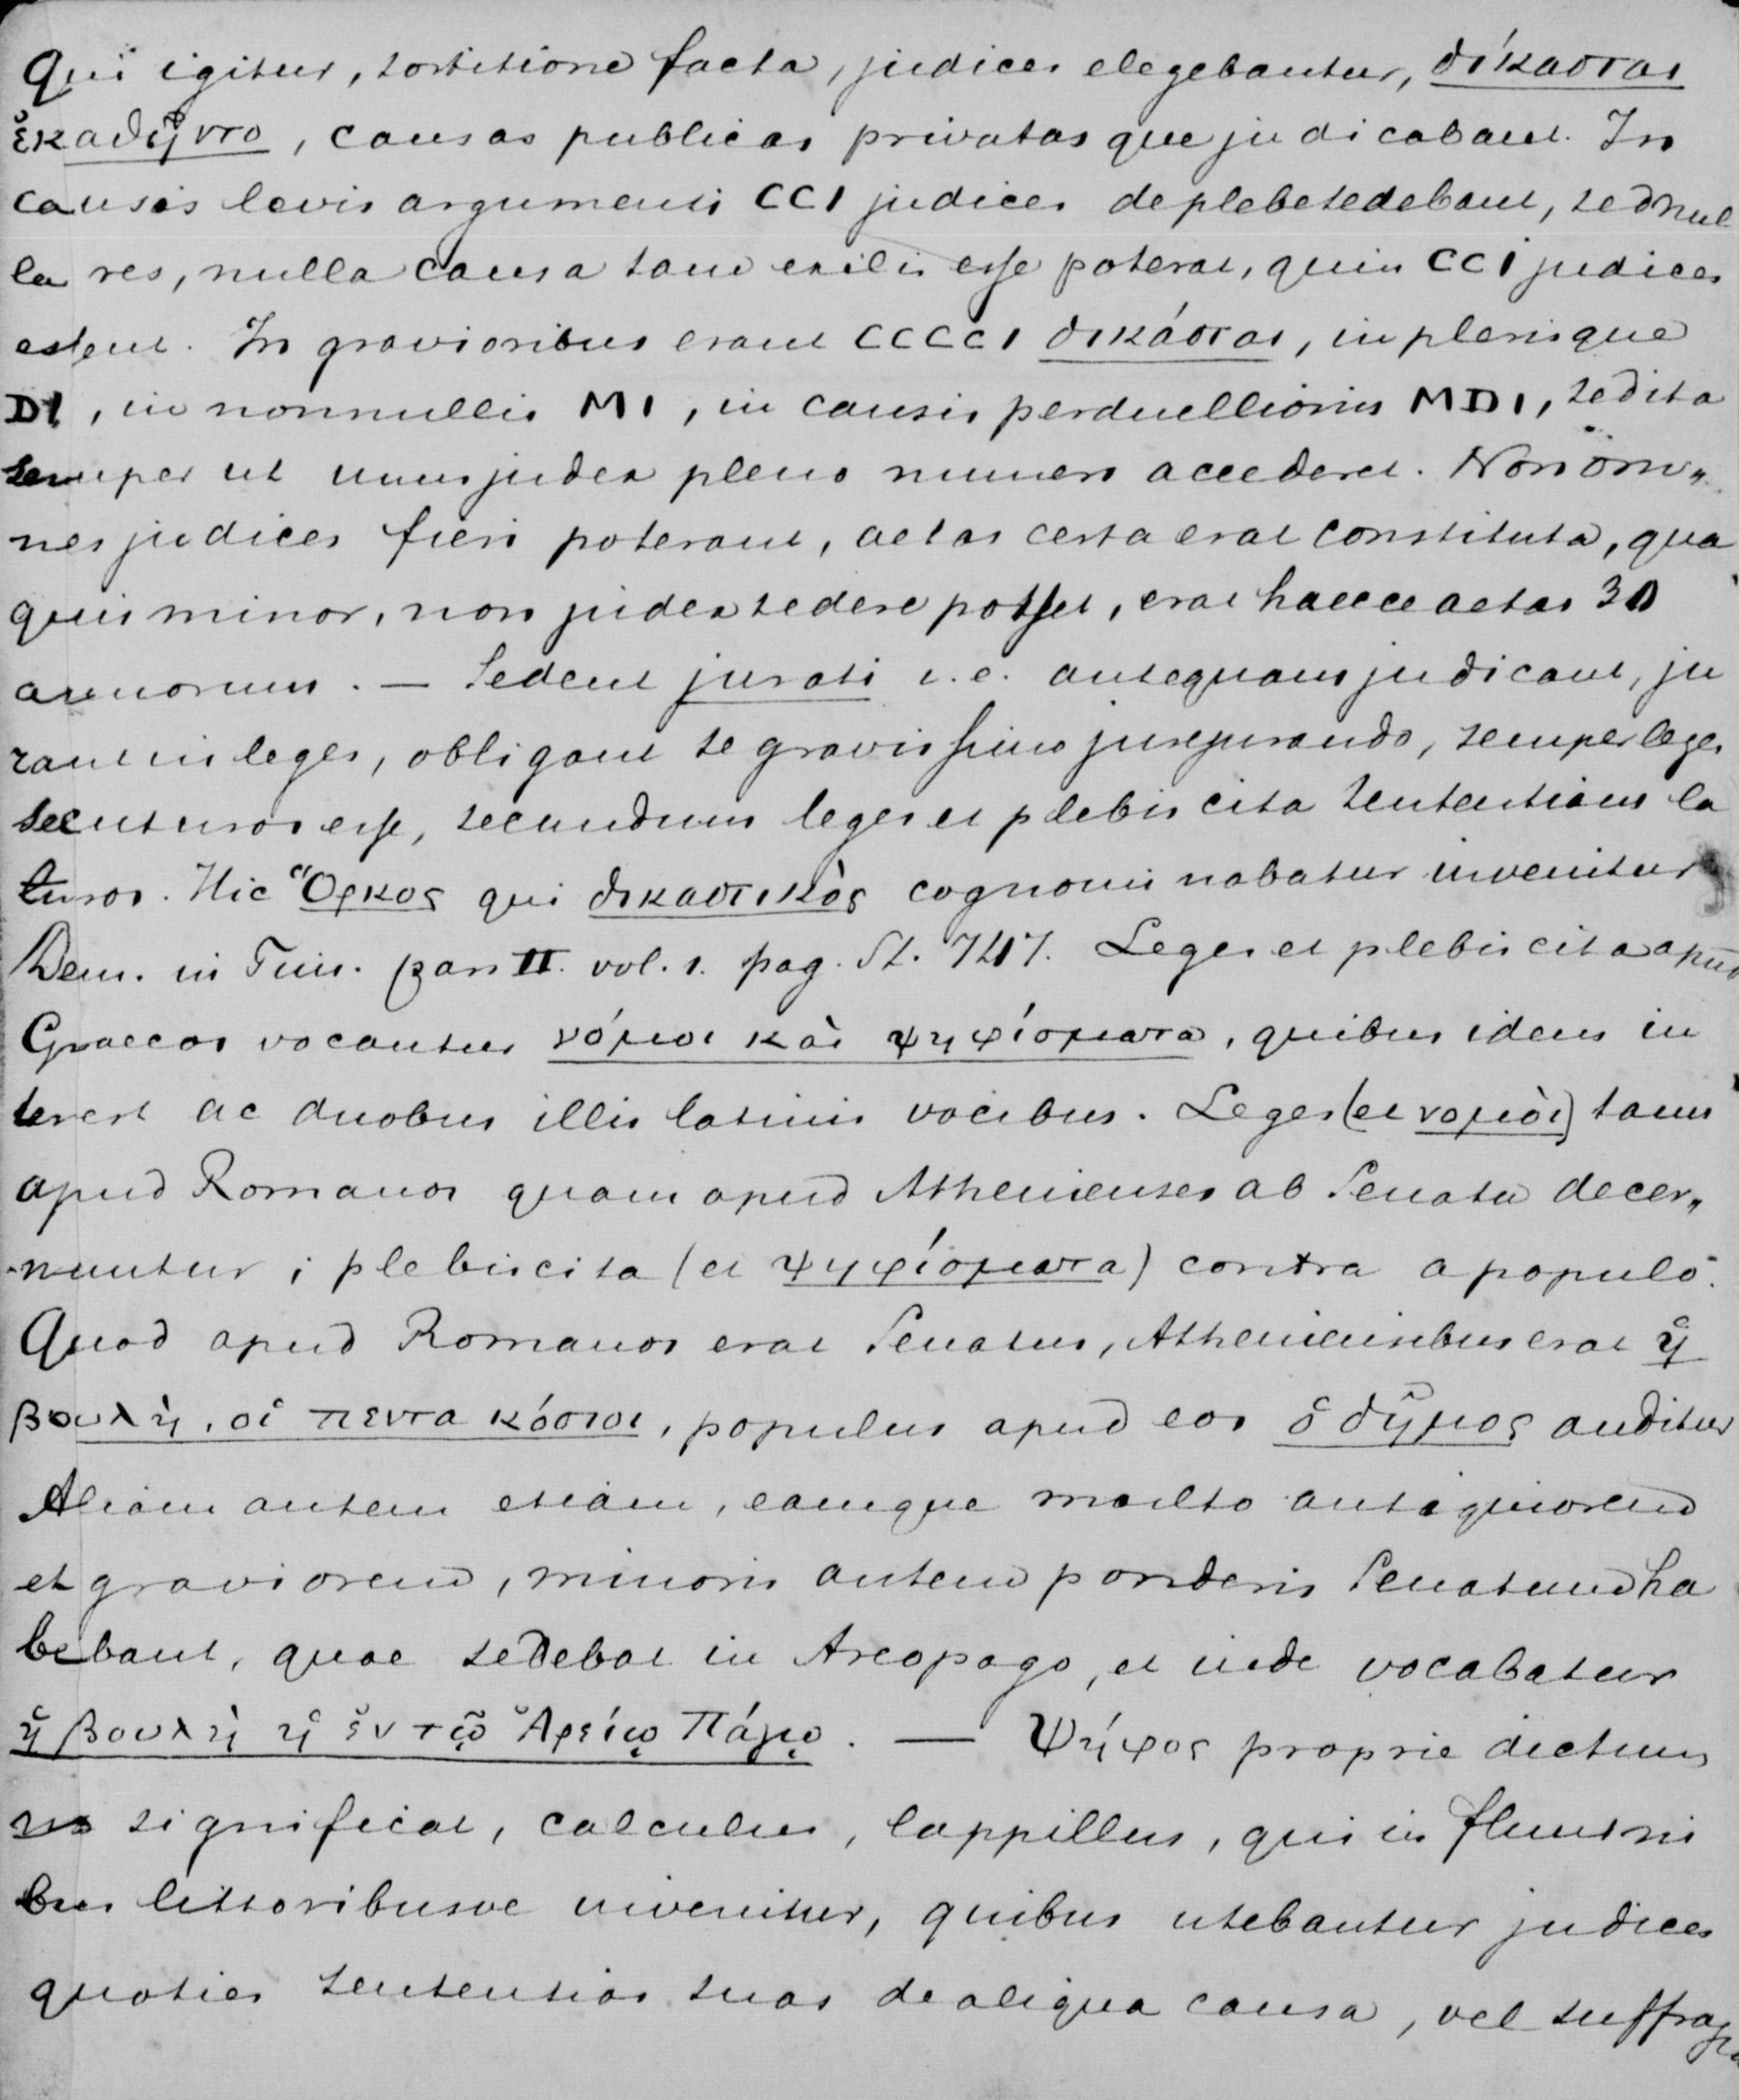 Qui igitur, sortitione facta, judices elegebantur, δίκασται
ἐκαθῆντο, causas publicas privatasque judicabant. In
causis levis argumenti CCI judices de plebe sedebant, sed nul
la res, nulla causa tam exilis esse poterat, quin CCI judices
essent. In gravioribus erant CCCCI δικάσται, in plerisque
DI, in nonnullis MI, in causis perduellionis MDI, sed ita
semper ut unus judex pleno numero accederet. Non om„
nes judices fieri poterant, aetas certa erat constituta, qua
quis minor, non judex sedere posset, erat haecce aetas 30
annorum. — Sedent jurati i.e. antequam judicant, ju
rant in leges, obligant se gravissimo jurejurando, semper leges
secuturos esse, secundum leges et plebiscita sententiam la
turos. Hic Ὅρκος qui δικαστικὸς cognominabatur invenitur
Dem. in Tim. pars II. vol. 1. pag. St. 747. Leges et plebiscita apud
Graecos vocantur νόμοι καὶ ψηφίσματα, quibus idem in
terest ac duobus illis latinis vocibus. Leges (et νομοὶ) tam
apud Romanos quam apud Athenienses ab Senatu decer„
nuntur; plebiscita (et ψηφίσματα) contra a populo.
Quod apud Romanos erat Senatus, Atheniensibus erat ἡ
βουλὴ, οἱ πεντακόσιοι, populus apud eos ὁ δῆμος auditur
Aliam autem etiam, eamque multo antiquiorem
et graviorem, minoris autem ponderis Senatum ha
bebant, quae sedebat in Areopago, et inde vocabatur
ἡ βουλὴ ἡ ἐν τῷ Ἀρείῳ Πάγῳ. — Ψήφος proprie dictum
significat, calculus, lappillus, qui in flumini
bus littoribusve invenitur, quibus utebantur judices
quoties sententias suas de aliqua causa, vel suffragia